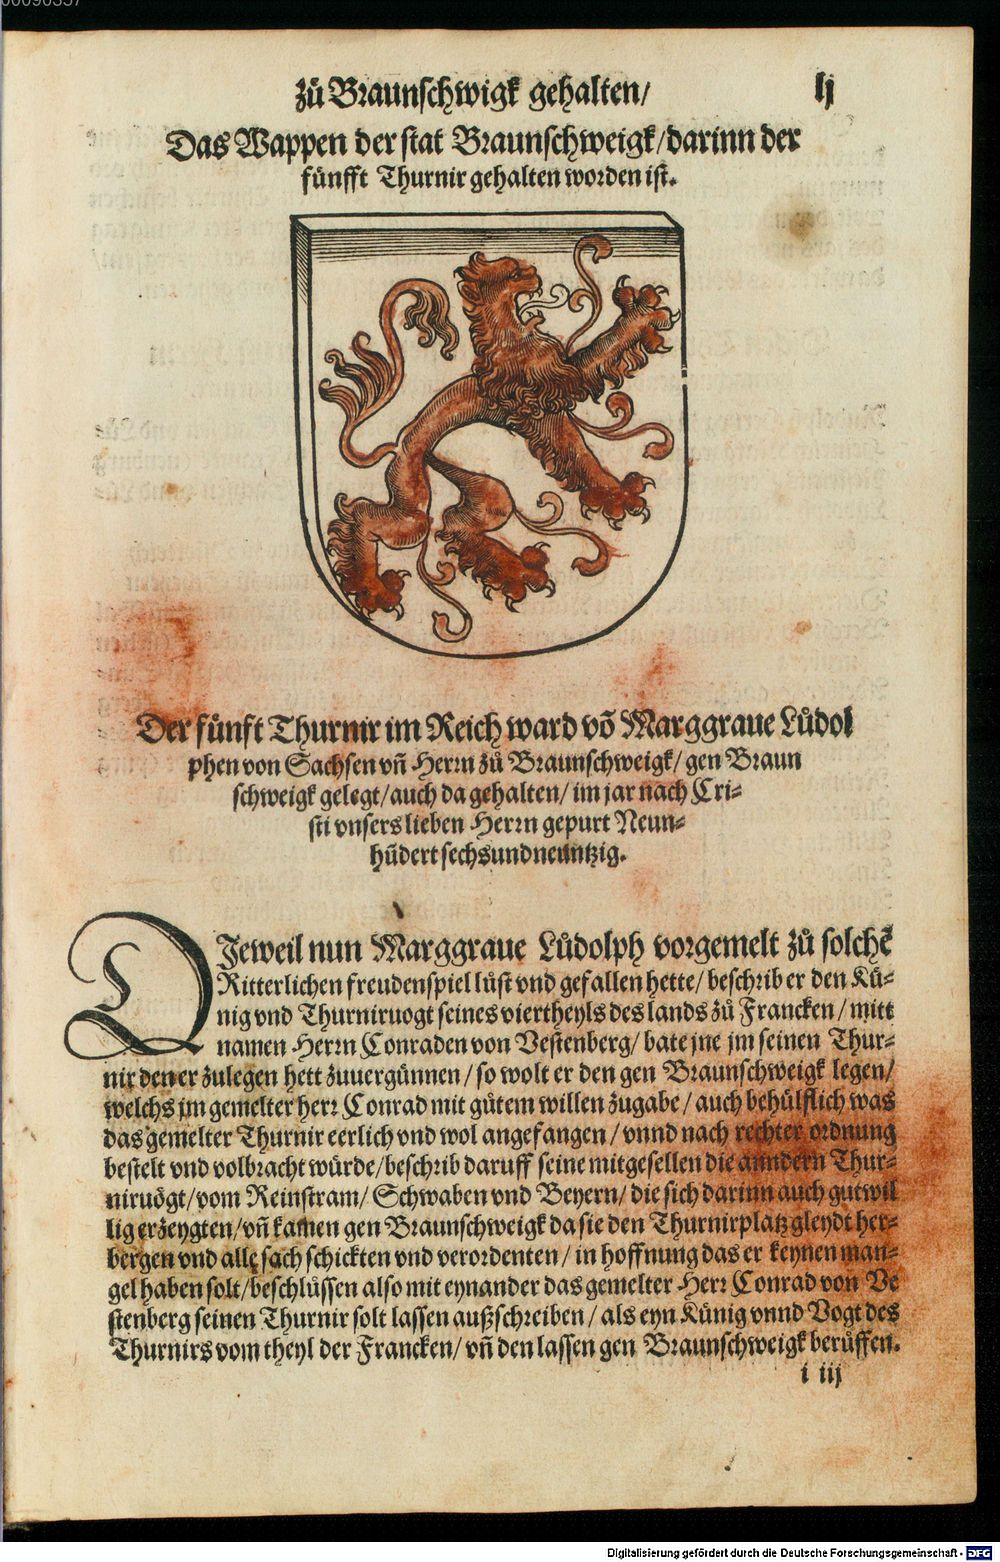 zů Braunschwigk gehalten/ lj
Das Wappen der stat Braunschweigk/darinn der
fünfft Thurnir gehalten worden ist.
Der fünft Thurnir im Reich ward võ Marggraue Lůdol
phen von Sachsen vñ Herrn zů Braunschweigk/ gen Braun
schweigk gelegt/auch da gehalten/ im jar nach Cri⸗
sti vnsers lieben Herrn gepurt Neun⸗
hũdert sechsundneüntzig.
DJeweil nun Marggraue Lůdolph vorgemelt zů solchẽ
Ritterlichen freudenspiel lüst vnd gefallen hette/ beschrib er den Kü⸗
nig vnd Thurniruogt seines viertheyls des lands zů Francken/ mitt
namen Herrn Conraden von Vestenberg/ bate jne jm seinen Thur⸗
nir den er zulegen hett zuuergünnen/ so wolt er den gen Braunschweigk legen/
welchs jm gemelter herr Conrad mit gůtem willen zugabe/ auch behülflich was
das gemelter Thurnir eerlich vnd wol angefangen/ vnnd nach rechter ordnung
bestelt vnd volbracht würde/beschrib daruff seine mitgesellen die anndern Thur⸗
niruögt/vom Reinstram/ Schwaben vnd Beyern/ die sich darinn auch gutwil
lig erzeygten/vñ kamen gen Braunschweigk da sie den Thurnirplatz gleydt her⸗
bergen vnd alle sach schickten vnd verordenten/ in hoffnung das er keynen man⸗
gel haben solt/beschlüssen also mit eynander das gemelter Herr Conrad von Ve
stenberg seinen Thurnir solt lassen außschreiben/ als eyn Künig vnnd Vogt des
Thurnirs vom theyl der Francken/ vñ den lassen gen Braunschweigk berůffen.
i iij
Digitalisierung gefördert durch die Deutsche Forschungsgemeinschaft - DFG